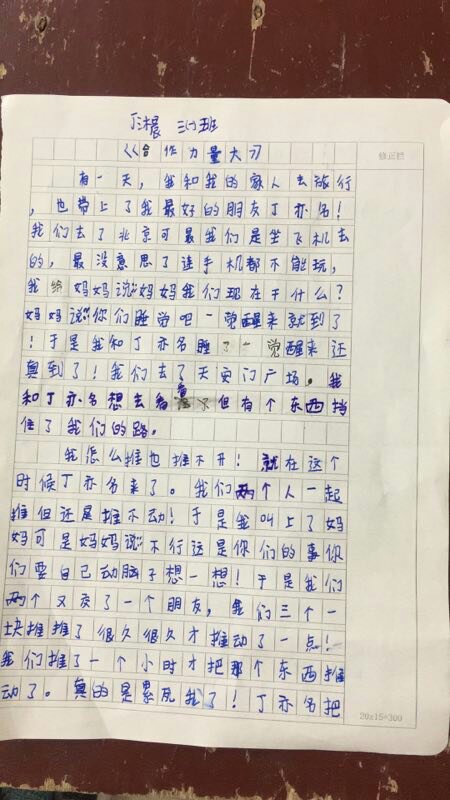 丁沐晨 三(一)班
《合作力量大》
修正栏
有一天，我和我的家人去旅行
，也带上了我最好的朋友丁亦名！
我们去了北京可是我们是坐飞机去
的，最没意思了连手机都不能玩，
我给妈妈说“妈妈我们现在干什么？
妈妈说“你们睡觉吧一觉醒来就到了
！于是我和丁亦名睡了一觉醒来还
真到了！我们去了天安门广场。我
和丁亦名想去看看 但有个东西挡
住了我们的路。
我怎么推也推不开！就在这个
时候丁亦名来了。我们两个人一起
推但还是推不动！于是我叫上了妈
妈可是妈妈说“不行这是你们的事你
们要自己动脑子想一想！于是我们
两个又交了一个朋友，我们三个一
块推推了很久很久才推动了一点！
我们推了一个小时才把那个东西推
动了。真的是累死我了！丁亦名把
20×15=300